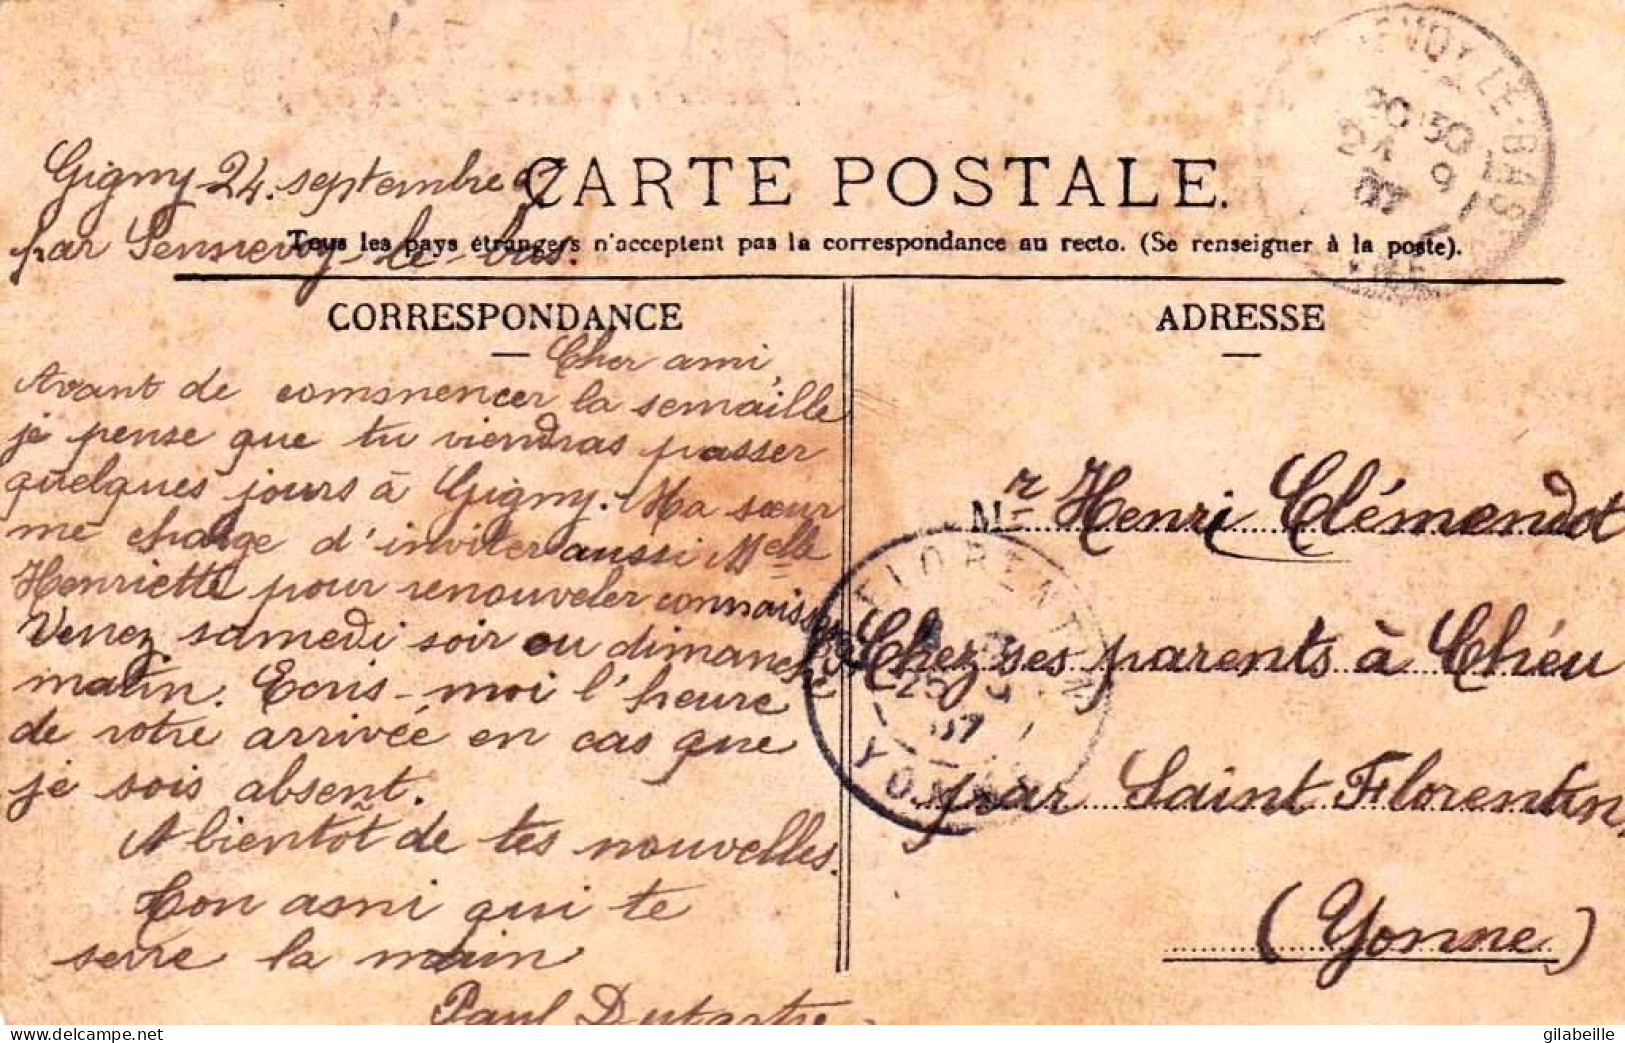 Gigny 24 septembre 07
par Sennevoy-le-bas.
CARTE POSTALE.
Tous les pays étrangers n'acceptent pas la correspondance au recto. (Se renseigner à la poste).
CORRESPONDANCE
Cher ami,
Avant de commencer la semaille
je pense que tu viendras passer
quelques jours à Gigny. Ma sœur
me charge d'inviter aussi Melle
Henriette pour renouveler connaissance.
Venez samedi soir ou dimanche
matin. Ecris-moi l'heure
de votre arrivée en cas que
je sois absent.
A bientôt de tes nouvelles.
Ton ami qui te
serre la main
Paul Dutartre
ADRESSE
Mr Henri Clémendot
Chez ses parents à Chéu
par Saint Florentin
(Yonne)
SENNEVOY-LE-BAS
20 30
24 9
07
YONNE
ST FLORENTIN
25 9
07
YONNE
www.delcampe.net
gilabeille